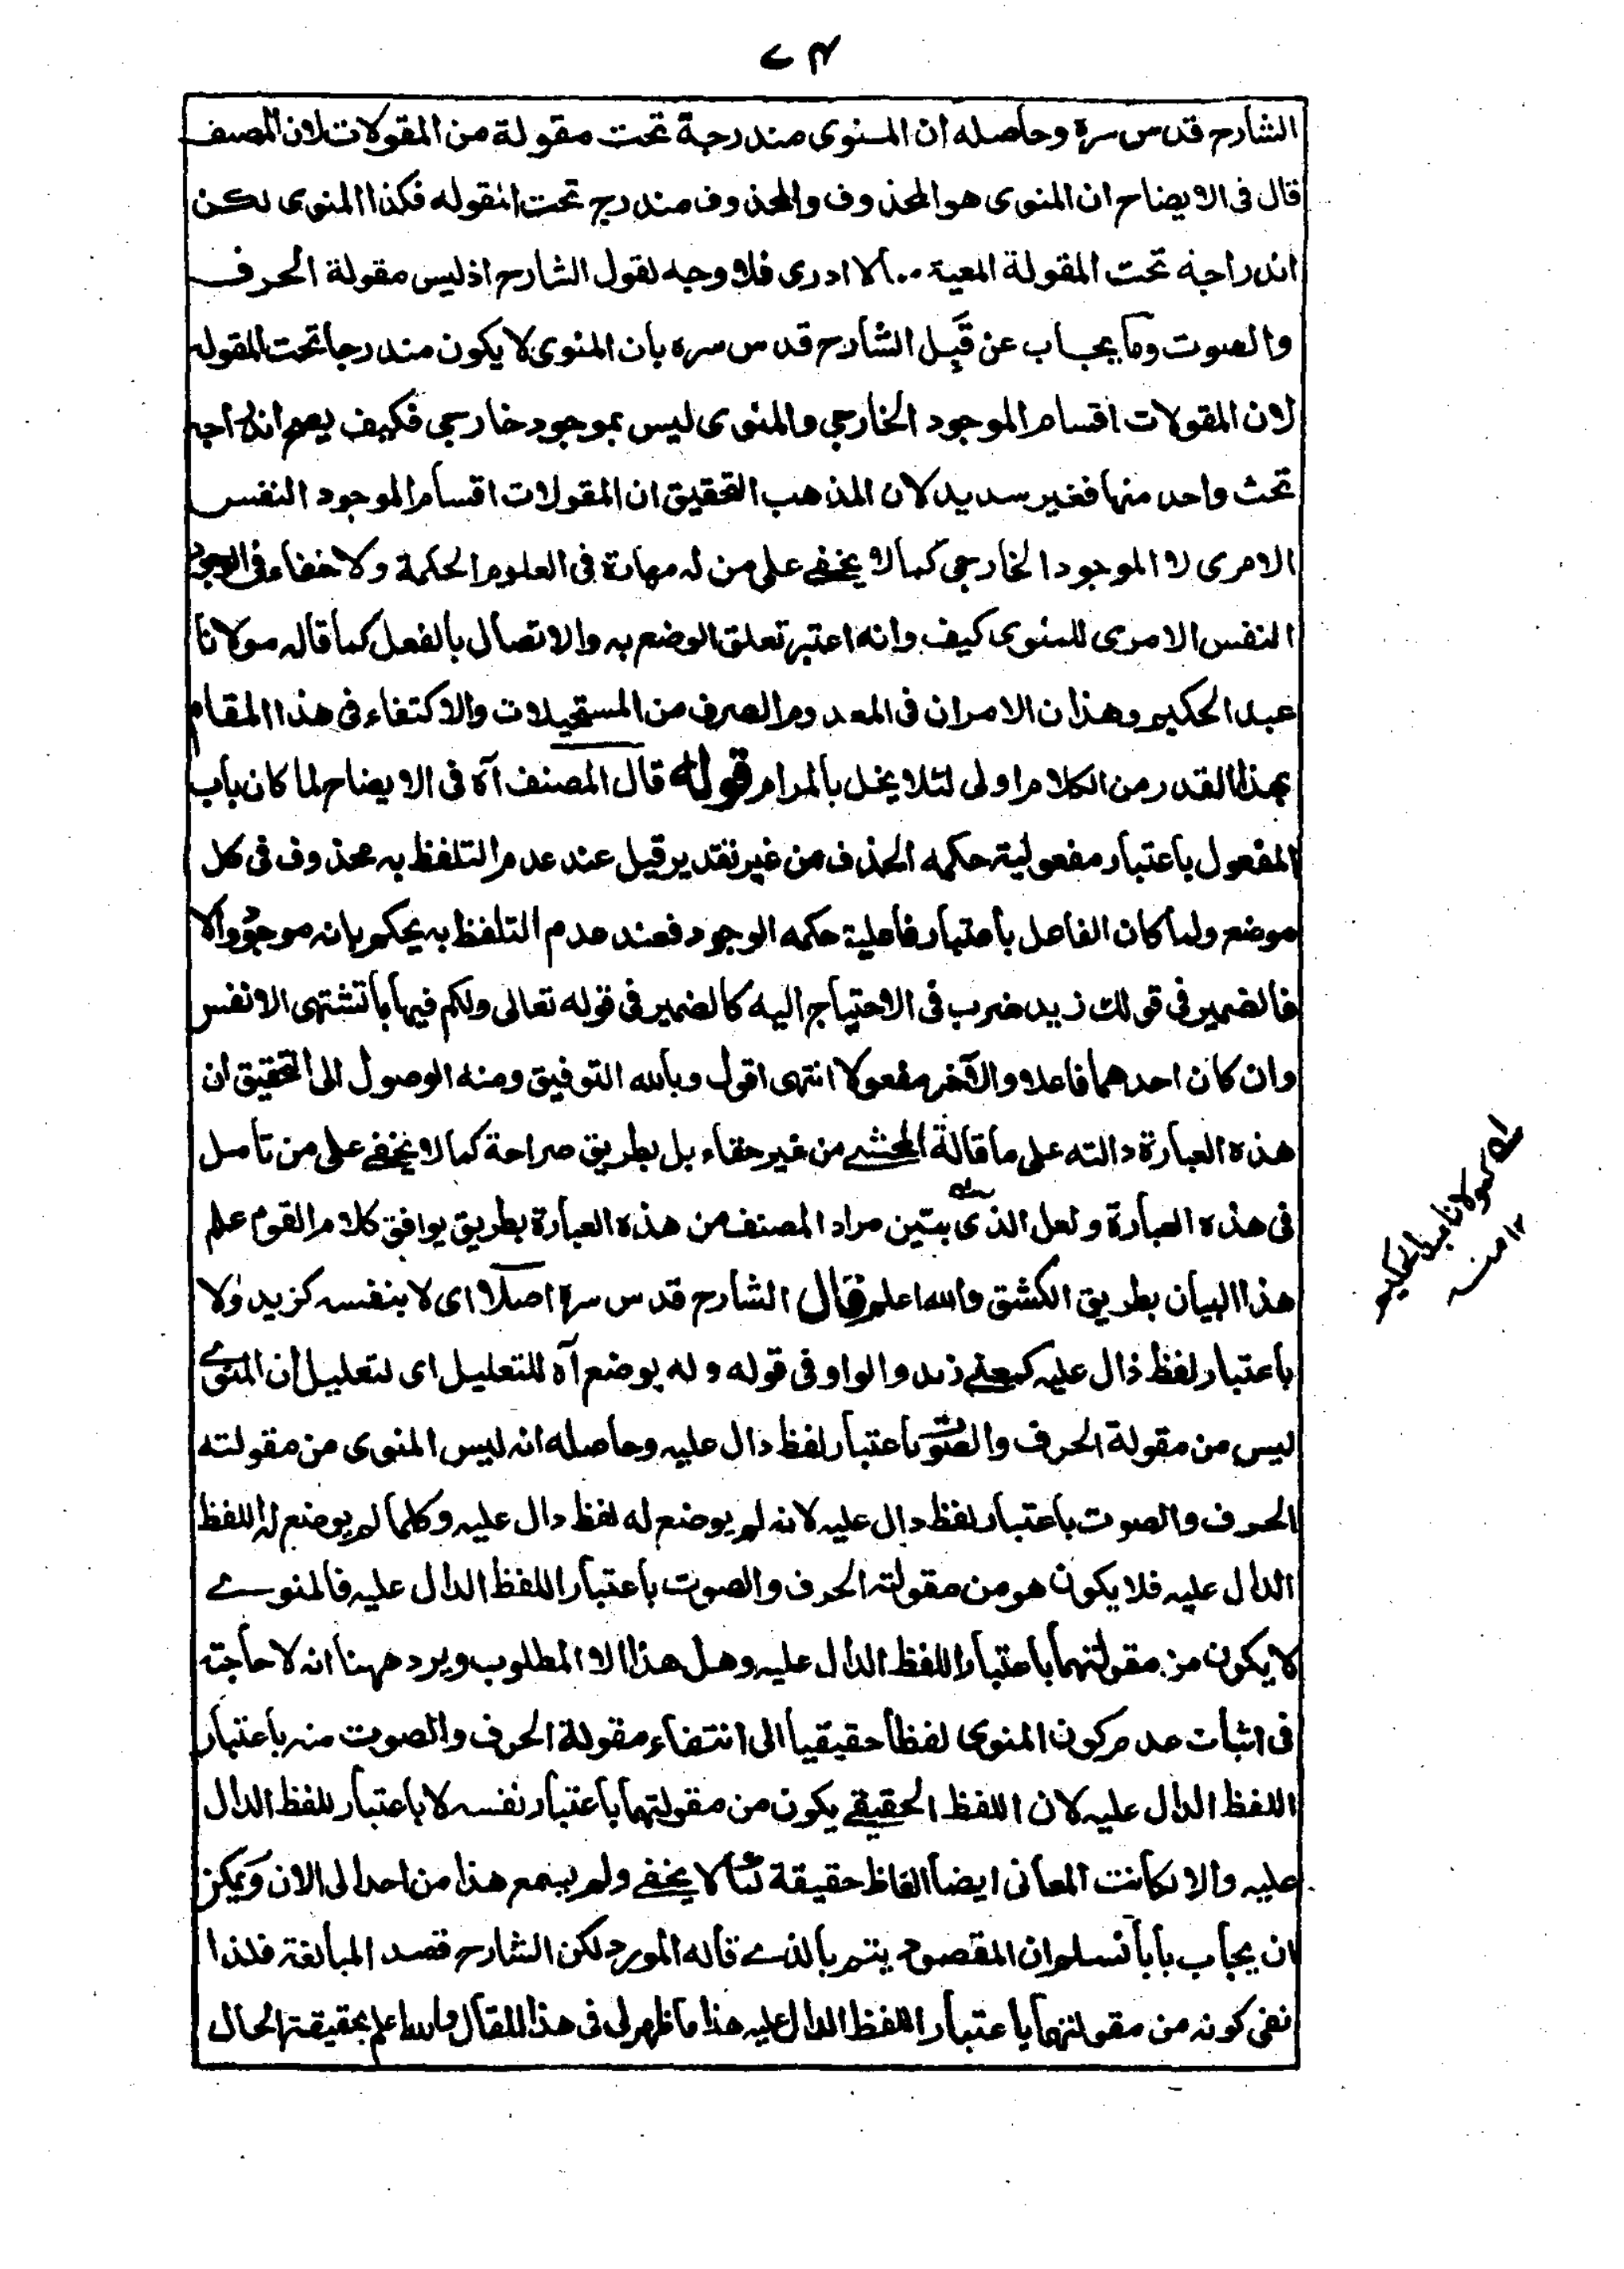 ٧٣
الشارح قدس سره وحاصله ان المنوى مندرجة تحت مقولة من المقولات لان المصنف
قال فى الايضاح ان المنوى هو المحذوف والمحذوف مندرج تحت المقوله فكذا المنوى لكن
اندراجه تحت المقولة المعية لا ادرى فلا وجه لقول الشارح اذ ليس مقولة الحرف
والصوت وما يجاب عن قِبَل الشارح قدس سره بان المنوى لا يكون مندرجا تحت المقوله
لان المقولات اقسام الموجود الخارجى والمنوى ليس بموجود خارجى فكيف يصح اندراجه
تحت واحد منها فغير سديد لان المذهب التحقيق ان المقولات اقسام الموجود النفس
الامرى لا الموجود الخارجى كما لا يخفے على من له مهارة فى العلوم الحكمة ولا خفاء فى الوجود
النفس الامرى للمنوى كيف وانه اعتبر تعلق الوضع به والاتصال بالفعل كما قاله مولانا
عبد الحكيم وهذان الامران فى المعدوم الصرف من المستحيلات والاكتفاء فى هذا المقام
بهذا القدر من الكلام اولى لئلا يخل بالمرام قوله قال المصنف آه فى الايضاح لما كان باب
المفعول باعتبار مفعولية حكمه الحذف من غير تقدير قيل عند عدم التلفظ به محذوف فى كل
موضع ولما كان الفاعل باعتبار فاعلية حكمه الوجود فعند عدم التلفظ به يحكم بانه موجود والا
فالضمير فى قولك زيد ضرب فى الاحتياج اليه كالضمير فى قوله تعالى ولكم فيها ما تشتهى الانفس
وان كان احدهما فاعلا والآخر مفعولا انتهى اقول وبالله التوفيق ومنه الوصول الى التحقيق ان
هذه العبارة دالته على ما قالة المحشے من غير حفاء بل بطريق صراحة كما لا يخفے على من تامل
فى هذه العبارة ولعل الذى بيّن مراد المصنف من هذه العبارة بطريق يوافق كلام القوم علم
هذا البيان بطريق الكشق والله اعلم قال الشارح قدس سره اصلا اى لا بنفسه كزيد ولا
باعتبار لفظ دال عليه كمعنے زيد والواو فى قوله وله يوضع آه للتعليل اى لتعليل ان المنوى
ليس من مقولة الحرف والصوت باعتبار لفظ دال عليه وحاصله انه ليس المنوى من مقولته
الحرف والصوت باعتبار لفظ دال عليه لانه لم يوضع له لفظ دال عليه وكلما لم يوضع له اللفظ
الدال عليه فلا يكون هو من مقولته الحرف والصوت باعتبار اللفظ الدال عليه فالمنوے
لا يكون من مقولتهما باعتبار اللفظ الدال عليه وهل هذا الا المطلوب ويرد ههنا انه لا حاجته
فى اثبات عدم كون المنوى لفظا حقيقيا الى انتفاء مقولة الحرف والصوت منه باعتبار
اللفظ الدال عليه لان اللفظ الحقيقے يكون من مقولتهما باعتبار نفسه لا باعتبار للفظ الدال
عليه والا لكانت المعانى ايضا الفاظ حقيقة كما لا يخفے ولم يسمع هذا من احد الى الان ويمكن
ان يجاب بابا نسلم ان المقصود يتم بالذے قاله المورد لكن الشارح قصد المبالغة فلذا
نفى كونه من مقولتهما باعتبار اللفظ الدال عليه هذا ما ظهر لى فى هذا المقال والله اعلم بحقيقة الحال
اى مولانا عبد الحكيم
١٢ منه